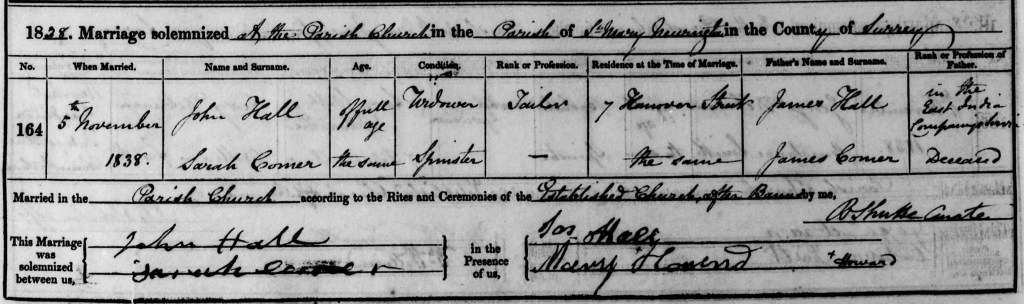 1838. Marriage solemnized at the Parish Church in the Parish of St Mary Newington in the County of Surrey
No. When Married. Name and Surname. Age. Condition. Rank or Profession. Residence at the Time of Marriage. Father's Name and Surname. Rank or Profession of Father.
164 5th November John Hall of full age Widower Tailor 7 Hanover Street James Hall in the East India Companys
1838. Sarah Comer the same Spinster — the same James Comer Deceased
Married in the Parish Church according to the Rites and Ceremonies of the Established Church, after Banns by me,
Curate
This Marriage was solemnized between us, John Hall in the Presence of us, Jas Hall
Sarah Comer Mary + Howard